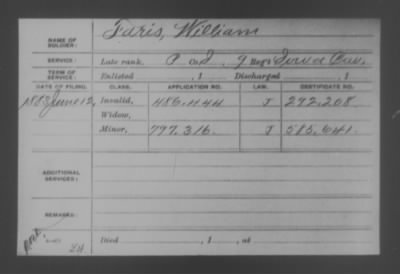 NAME OF SOLDIER: Faris, William
SERVICE: Late rank, P Co I, 9 Reg't Iowa Cav.
TERM OF SERVICE: Enlisted , 1 Discharged , 1
DATE OF FILING. CLASS. APPLICATION NO. LAW. CERTIFICATE NO.
1883 June 12, Invalid, 486.444 J 292.208
Widow,
Minor, 797.316. J 585.641.
ADDITIONAL SERVICES:
REMARKS:
Died , 1 , at